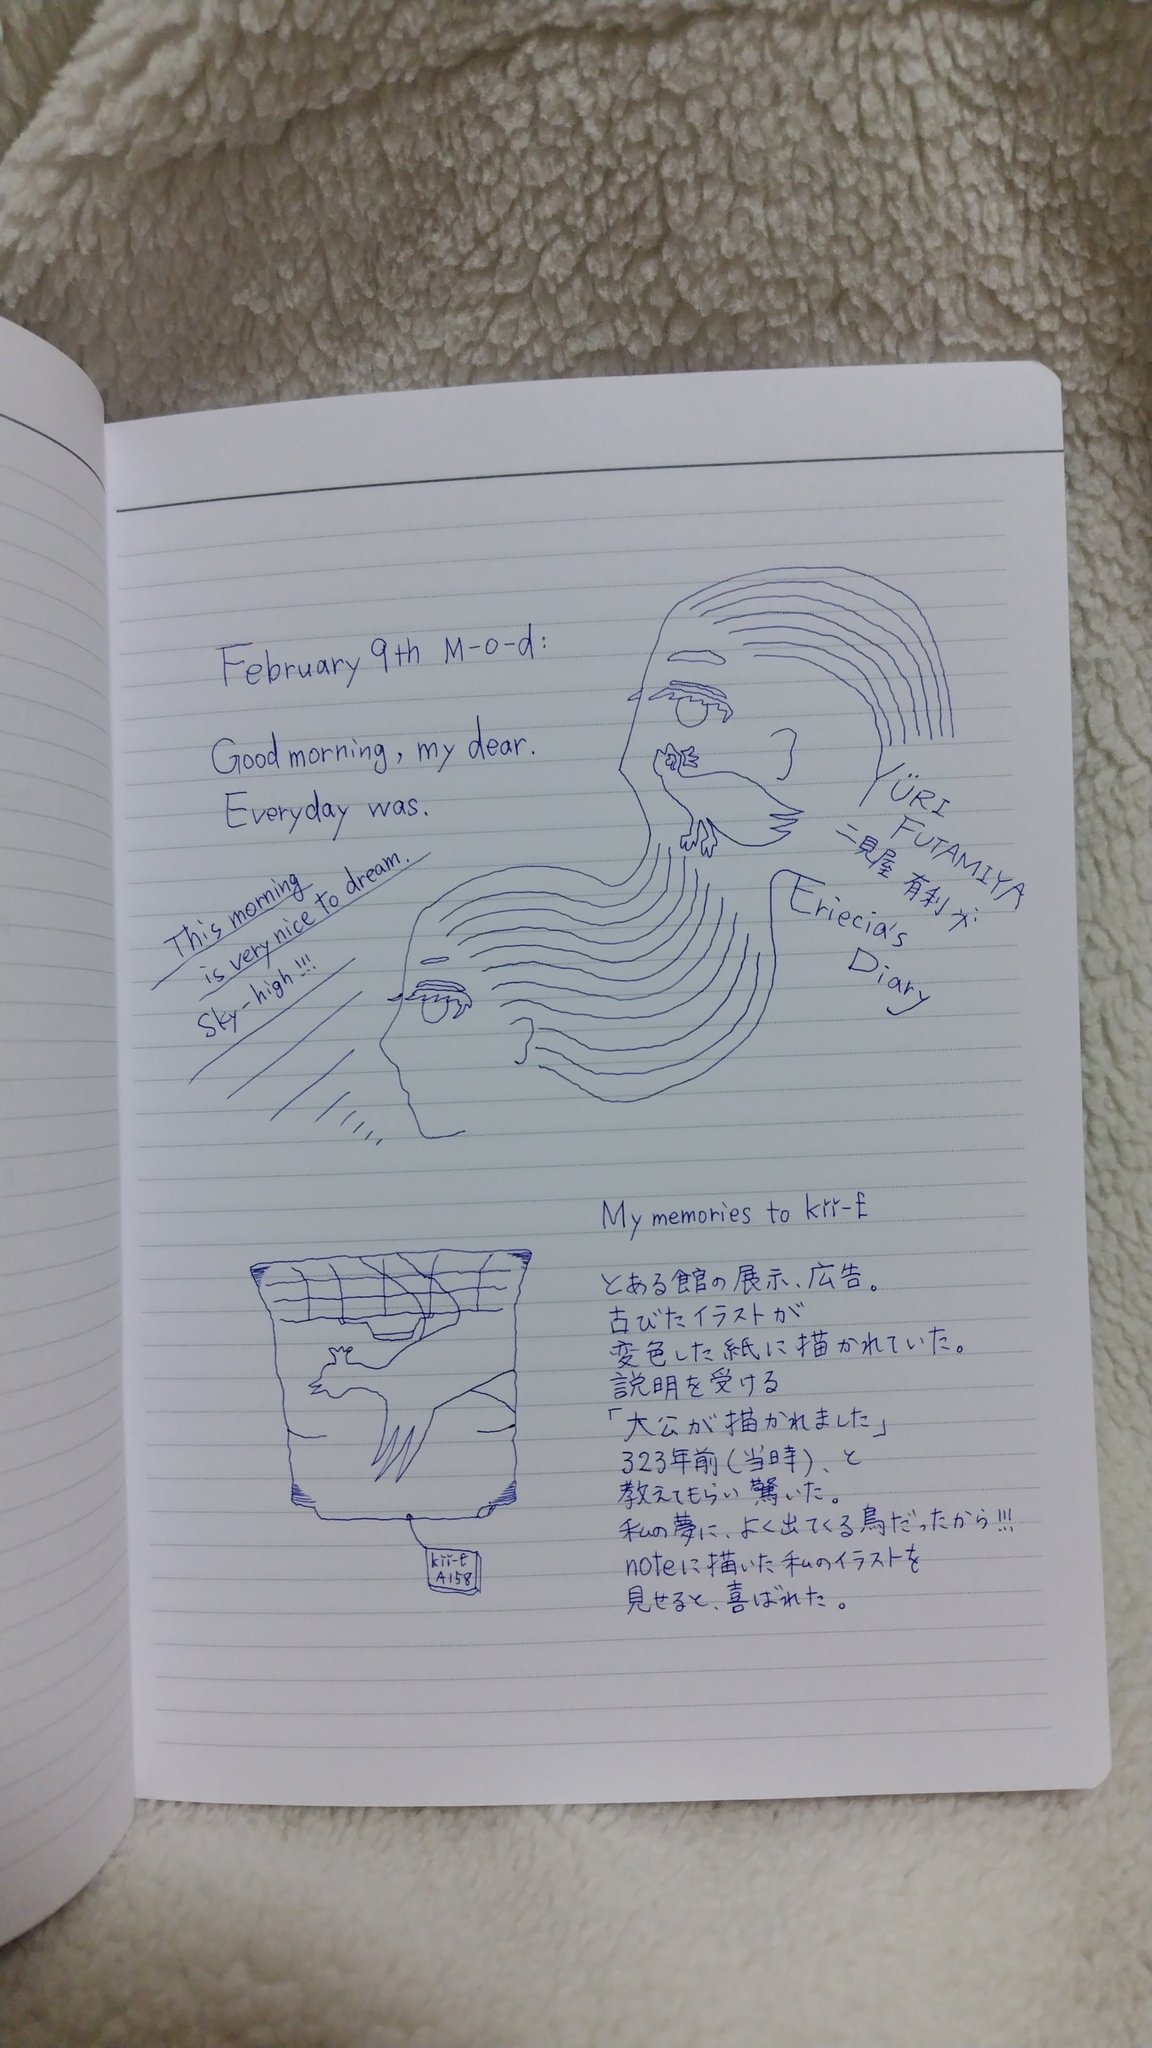 February 9th M-o-d:
Good morning, my dear.
Everyday was.
This morning
is very nice to dream.
Sky-high!!!
YÜRI
FUTAMIYA
二貝屋 有利が
Eriecia's
Diary
My memories to kii-t
とある館の展示、広告。
古びたイラストが
変色した紙に描かれていた。
説明を受ける
「大公が描かれました」
323年前(当時)、と
教えてもらい驚いた。
私の夢に、よく出てくる鳥だったから!!!
noteに描いた私のイラストを
見せると、喜ばれた。
kii-t
A158